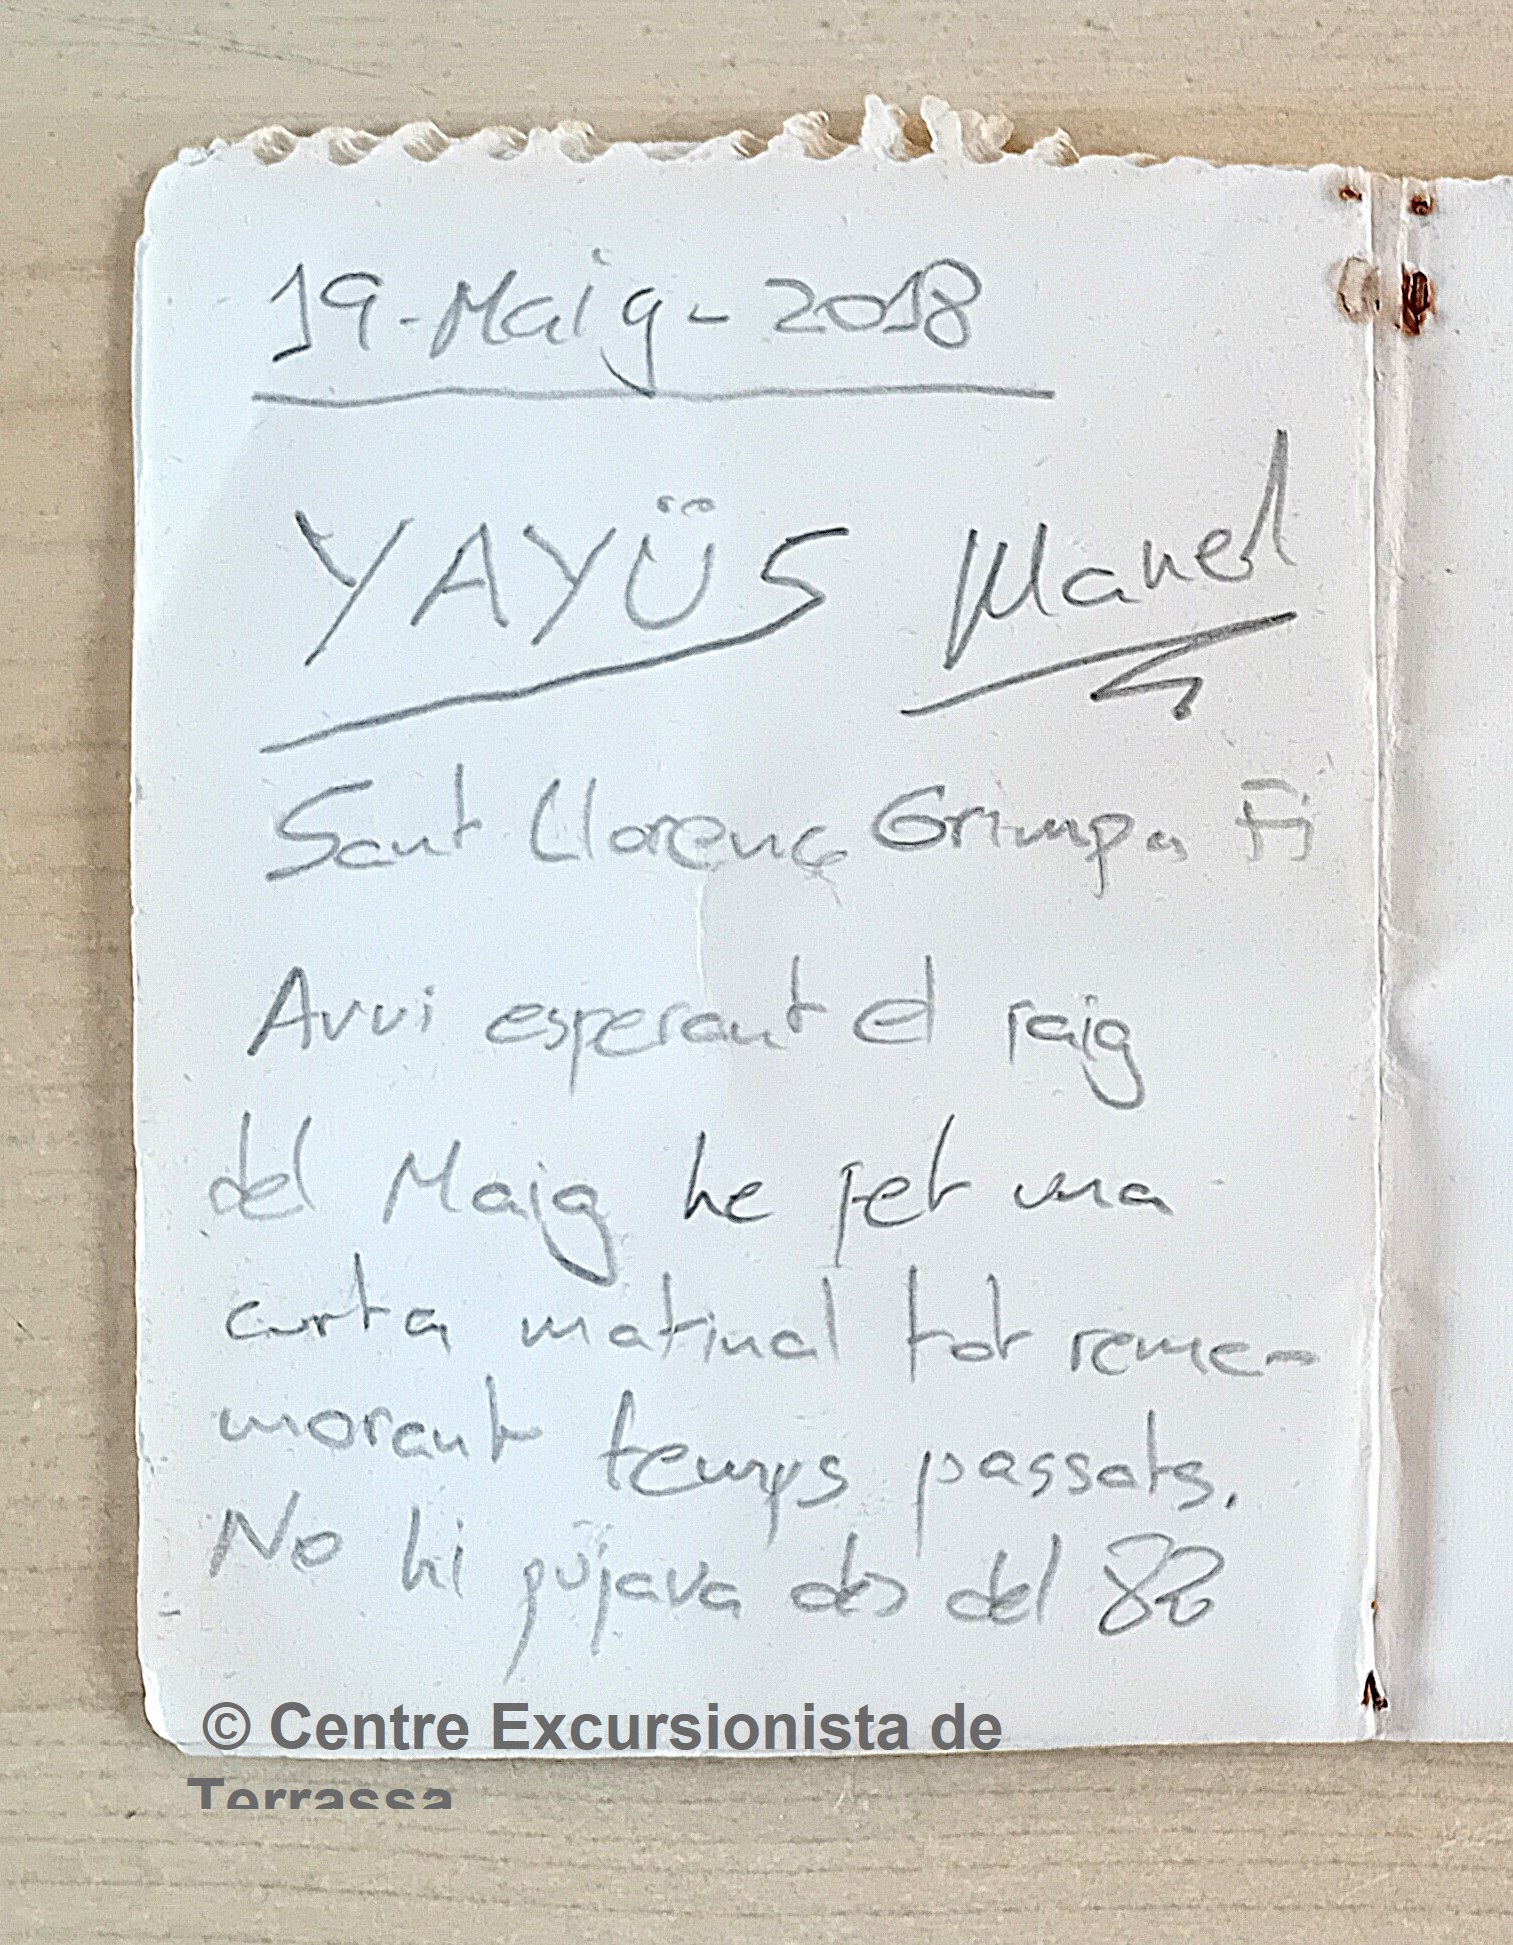 19-Maig-2018
YAYÜS Manel
Sant Llorenç Grimpa Fi
Avui esperant el raig
del Maig he fet una
curta matinal tot reme-
morant temps passats.
No hi pujava des del 82
© Centre Excursionista de
Terrassa